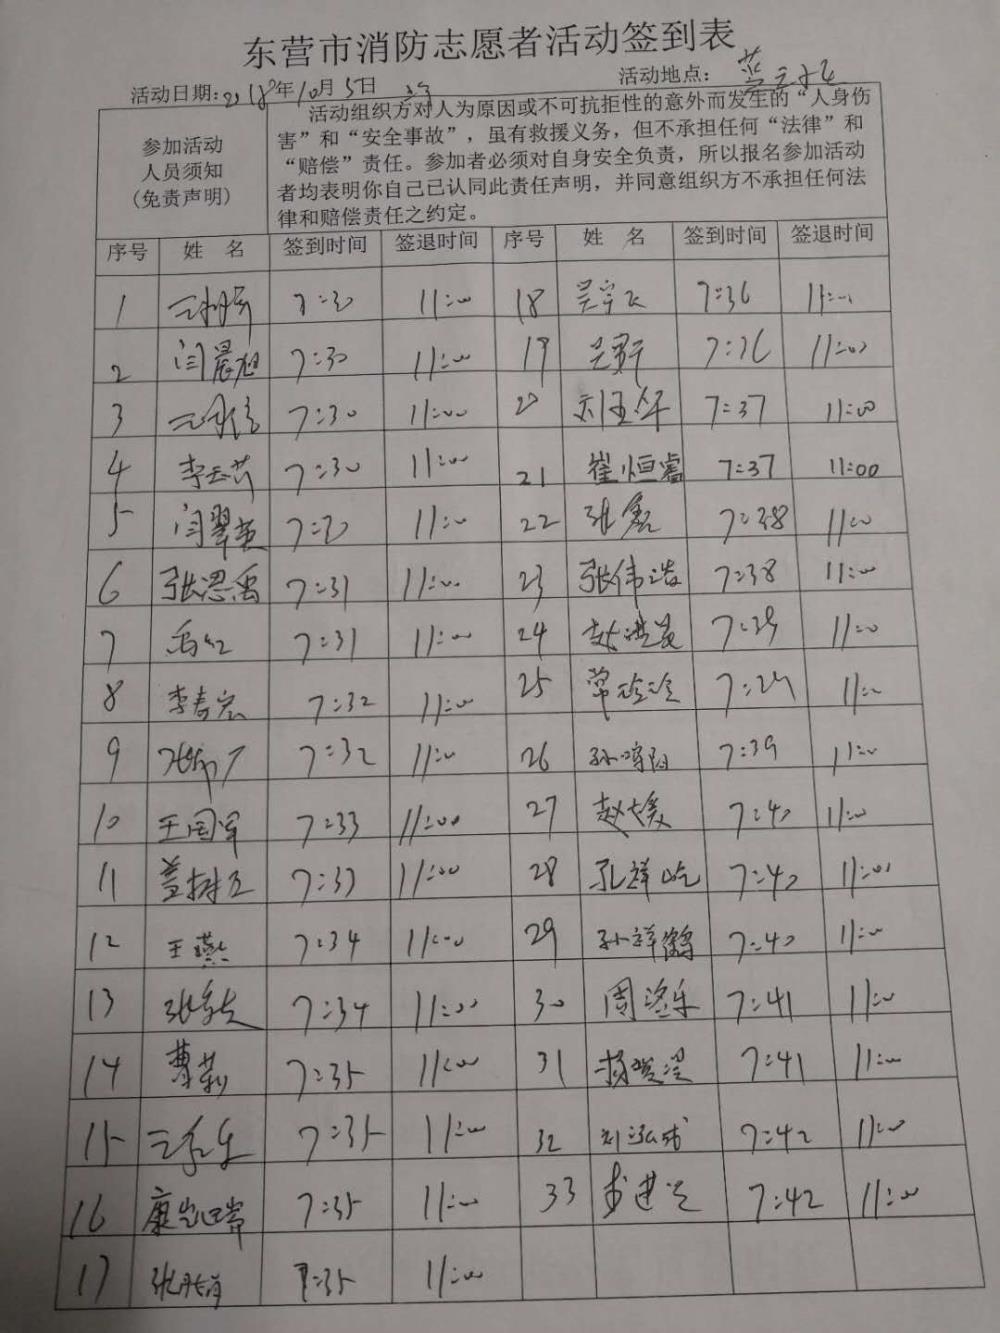 东营市消防志愿者活动签到表
活动日期:2018年10月5日 活动地点:
参加活动
人员须知
(免责声明)
活动组织方对人为原因或不可抗拒性的意外而发生的“人身伤
害”和“安全事故”,虽有救援义务,但不承担任何“法律”和
“赔偿”责任。参加者必须对自身安全负责,所以报名参加活动
者均表明你自己已认同此责任声明,并同意组织方不承担任何法
律和赔偿责任之约定。
序号 姓 名 签到时间 签退时间 序号 姓 名 签到时间 签退时间
1 7:30 11:00 18 7:36 11:00
2 闫晨旭 7:30 11:00 19 7:36 11:00
3 7:30 11:00 20 7:37 11:00
4 7:30 11:00 21 崔恒睿 7:37 11:00
5 闫翠英 7:30 11:00 22 张 7:38 11:00
6 张思禹 7:31 11:00 23 张伟 7:38 11:00
7 7:31 11:00 24 赵 7:39 11:00
8 李春宏 7:32 11:00 25 7:39 11:00
9 7:32 11:00 26 孙鸣阳 7:39 11:00
10 王国军 7:33 11:00 27 赵 7:40 11:00
11 7:33 11:00 28 孔祥屹 7:40 11:00
12 王燕 7:34 11:00 29 孙祥鹤 7:40 11:00
13 张 7:34 11:00 30 周 7:41 11:00
14 曹莉 7:35 11:00 31 杨 7:41 11:00
15 7:35 11:00 32 刘泓 7:42 11:00
16 康 7:35 11:00 33 7:42 11:00
17 张 7:35 11:00